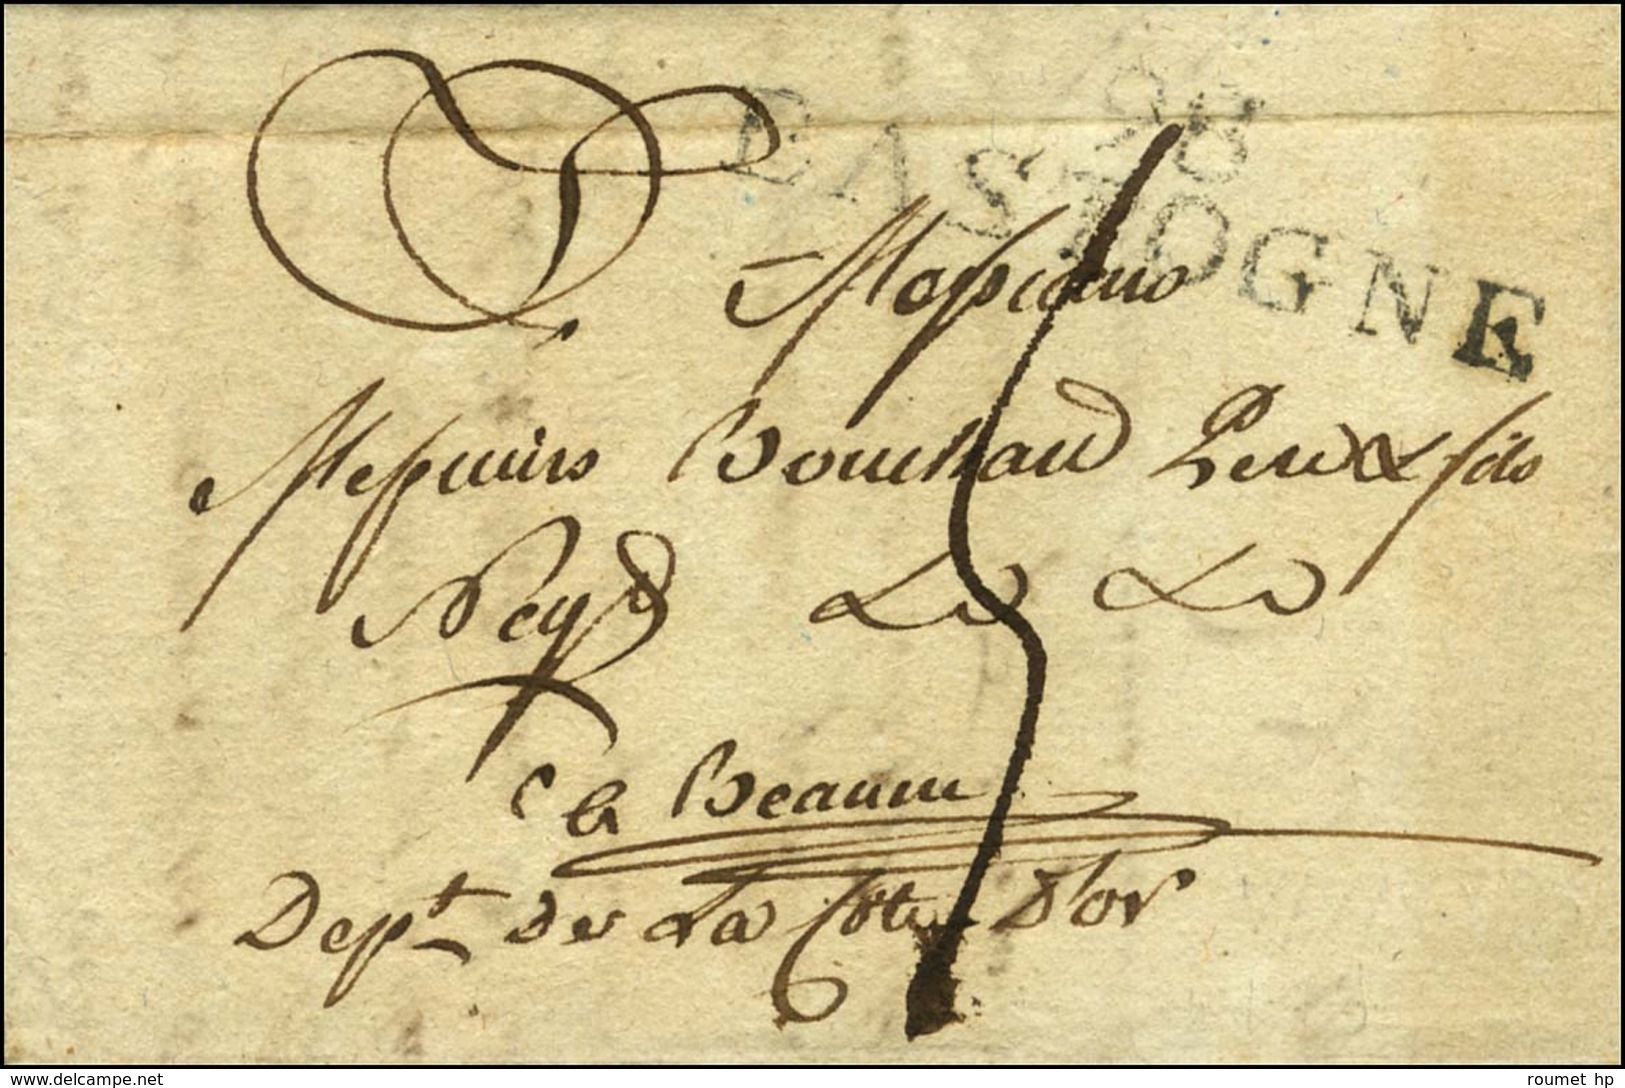 98
BASTOGNE
Messieurs
Messieurs Bouchard Pere & fils
Negts
a Beaune
Dept de La Côte D'or
delcampe.net
roumet hp